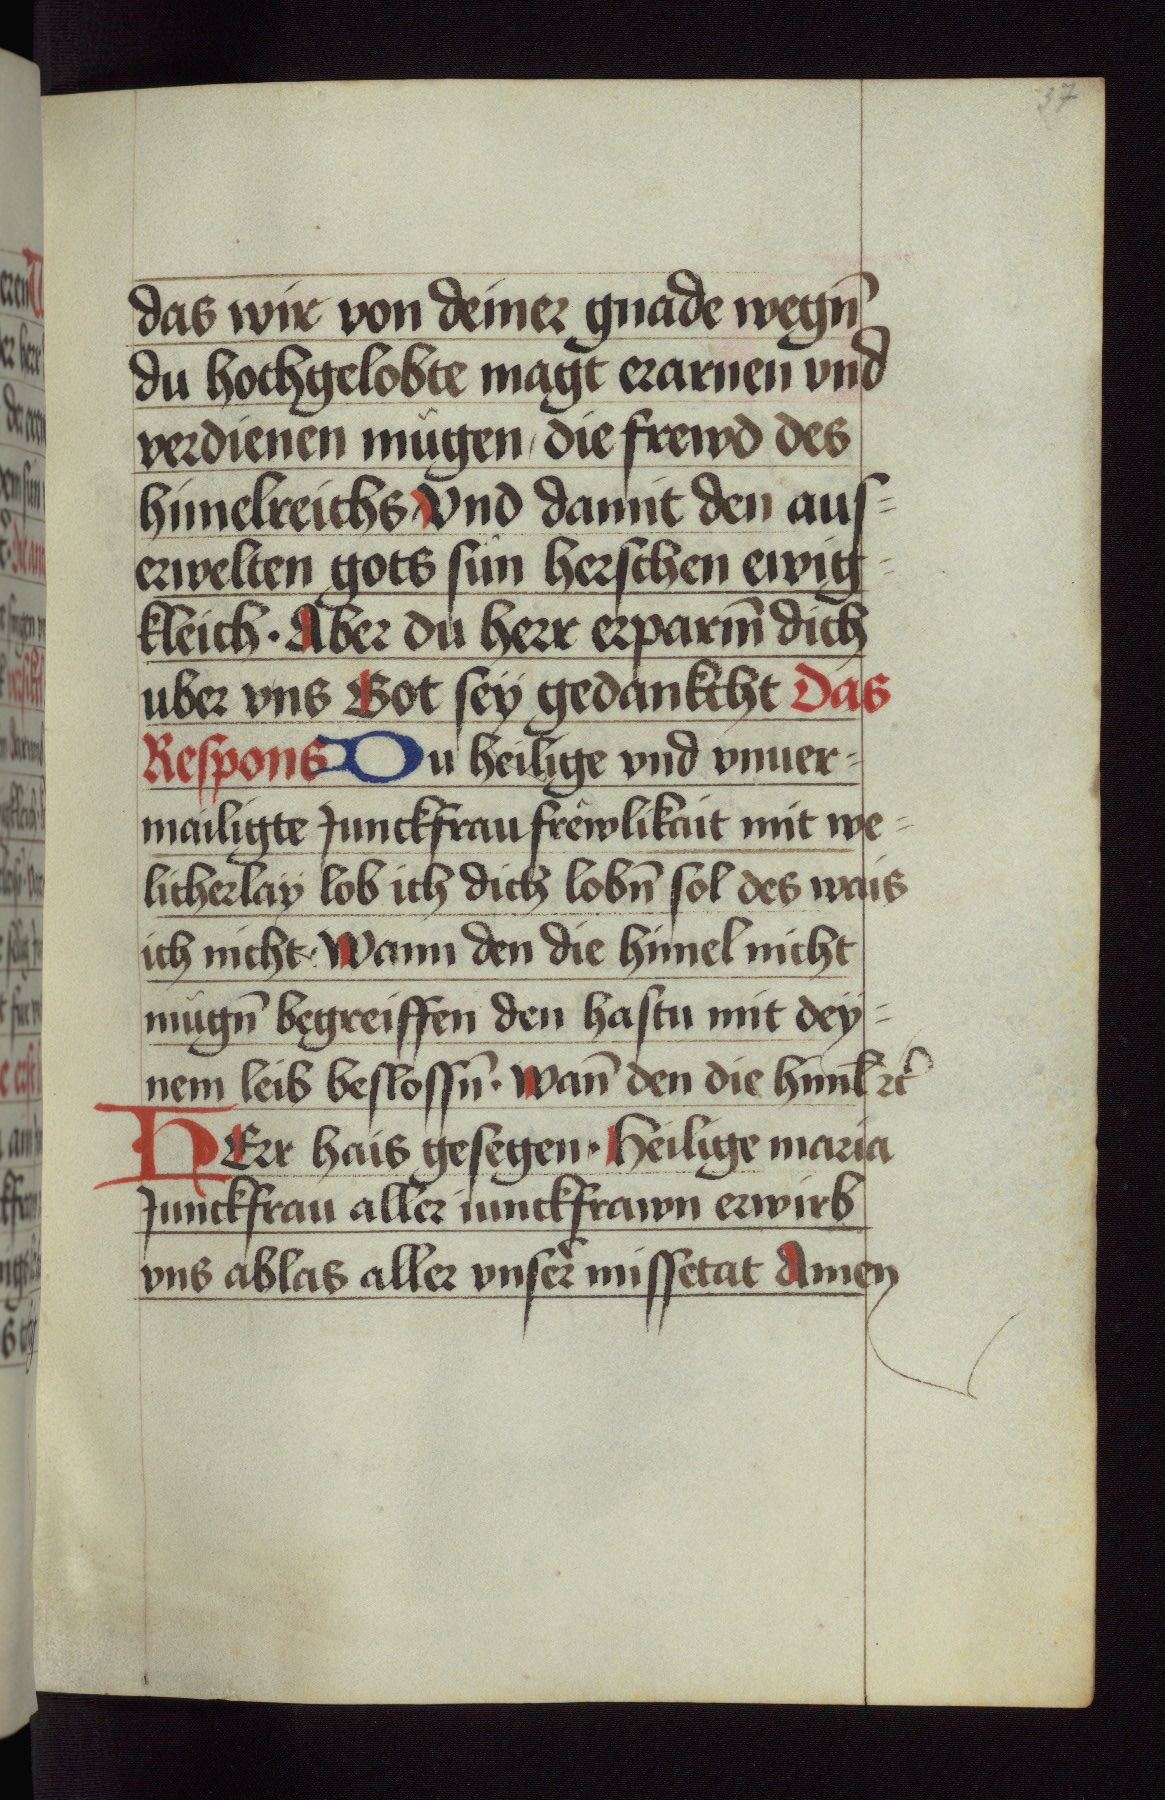 37
das wir von deiner gnade wegn̄
du hochgelobte magt erarnen vnd
verdienen mügen / die frewd des
himelreichs Vnd damit den aus=
erwelten gots sün herschen ewig=
kleich · Aber du herr erparm̄ dich
uber vns Got sey gedanktht Das
Respons Du heilige vnd vnuer=
mailigte Junckfrau frewlikait mit we=
licherlay lob ich dich lobn̄ sol des wais
ich nicht · Wann den die himel nicht
mügn̄ begreiffen den hastu mit dey=
nem leib beslossn̄ · Wan̄ den die himl̄ ꝛc̄
HErr hais gesegen · Heilige maria
Junckfrau aller iunckfrawn erwirb
vns ablas aller vnser̄ missetat Amen